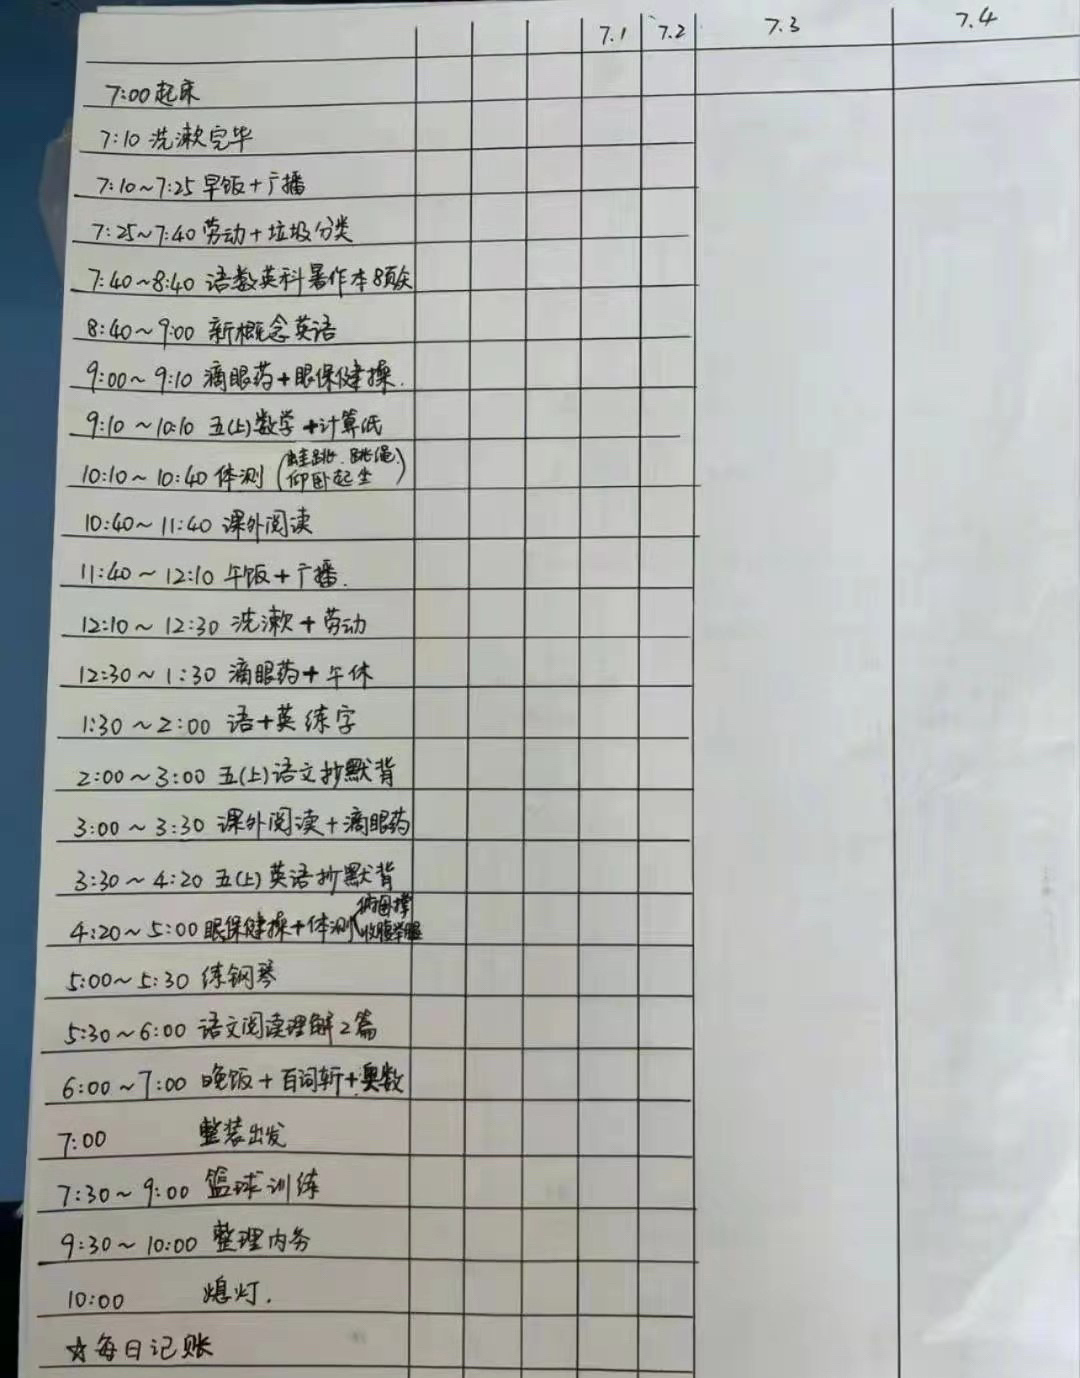 7.1 7.2 7.3 7.4
7:00 起床
7:10 洗漱完毕
7:10~7:25 早饭+广播
7:25~7:40 劳动+垃圾分类
7:40~8:40 语数英科暑作本8页
8:40~9:00 新概念英语
9:00~9:10 滴眼药+眼保健操.
9:10~10:10 五(上)数学+计算纸
10:10~10:40 体测(蛙跳、跳绳、仰卧起坐)
10:40~11:40 课外阅读
11:40~12:10 午饭+广播.
12:10~12:30 洗漱+劳动
12:30~1:30 滴眼药+午休
1:30~2:00 语+英练字
2:00~3:00 五(上)语文抄默背
3:00~3:30 课外阅读+滴眼药
3:30~4:20 五(上)英语抄默背
4:20~5:00 眼保健操+体测(俯卧撑 收腹举腿
5:00~5:30 练钢琴
5:30~6:00 语文阅读理解2篇
6:00~7:00 晚饭+百词斩+奥数
7:00 整装出发
7:30~9:00 篮球训练
9:30~10:00 整理内务
10:00 熄灯.
☆每日记账